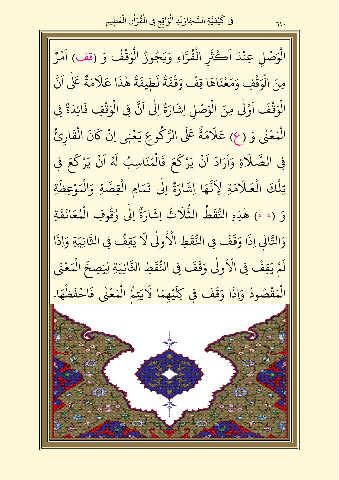 فِى كَيْفِيَّةِ السَّجَاوَنْدِ الْوَاقِعِ فِى الْقُرْاٰنِ الْعَظِيمِ
الْوَصْلِ عِنْدَ اَكْثَرِ الْقُرَّاءِ وَيَجُوزُ الْوَقْفُ وَ (قف) اَمْرٌ
مِنَ الْوَقْفِ وَمَعْنَاهَا قِفْ وَقْفَةً لَطِيفَةً هٰذَا عَلَامَةٌ عَلٰى اَنَّ
الْوَقْفَ اَوْلٰى مِنَ الْوَصْلِ اِشَارَةً اِلٰى اَنَّ فِى الْوَقْفِ فَائِدَةً فِى
الْمَعْنٰى وَ (ع) عَلَامَةٌ عَلَى الرُّكُوعِ يَعْنِى اِنْ كَانَ الْقَارِئُ
فِى الصَّلَاةِ وَاَرَادَ اَنْ يَرْكَعَ فَالْمُنَاسِبُ لَهُ اَنْ يَرْكَعَ فِى
تِلْكَ الْعَلَامَةِ لِاَنَّهَا اِشَارَةٌ اِلٰى تَمَامِ الْقِصَّةِ وَالْمَوْعِظَةِ
وَ (∴ ∴) هٰذِهِ النُّقَطُ الثَّلَاثُ اِشَارَةٌ اِلٰى وُقُوفِ الْمُعَانَقَةِ
وَالتَّالِى اِذَا وَقَفَ فِى النُّقَطِ الْاُولٰى لَا يَقِفُ فِى الثَّانِيَةِ وَاِذَا
لَمْ يَقِفْ فِى الْاُولٰى وَقَفَ فِى النُّقَطِ الثَّانِيَةِ لِيَصِحَّ الْمَعْنَى
الْمَقْصُودُ وَاِذَا وَقَفَ فِى كِلَيْهِمَا لَايَتِمُّ الْمَعْنٰى فَاحْفَظْهَا.